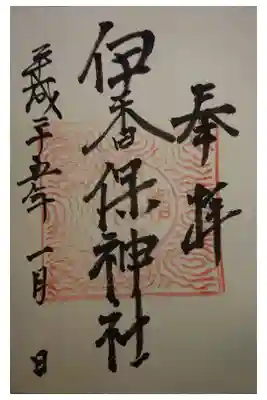 奉拝
伊香保神社
平成二十五年一月 日